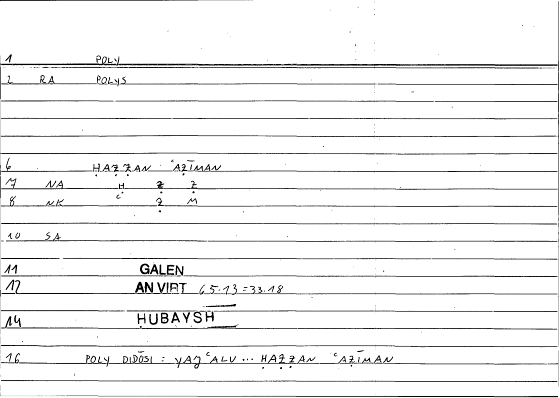 1 POLY
2 RA POLYS
6 ḤAẒẒAN ʿAẒĪMAN
7 NA Ḥ Ẓ Ẓ
8 NK ʿ Ẓ M
10 SA
11 GALEN
12 AN VIRT 65.13=33.18
14 HUBAYSH
16 POLY DIDŌSI : YAǦʿALU ... ḤAẒẒAN ʿAẒĪMAN